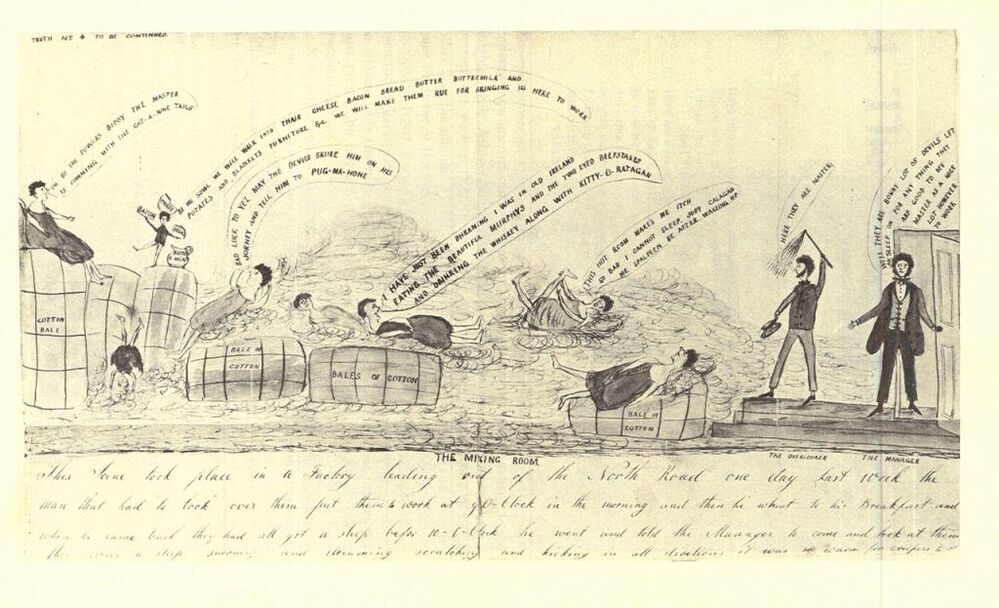 TRUTH No 4 TO BE CONTINUED.
OH BE THE POWERS BIDDY THE MASTER
IS CUMMING WITH THE CAT-A-NINE TAILS
BE ME SOWL WE WILL WALK INTO THAIR CHEESE BACON BREAD BUTTER BUTTERMILK AND
POTATES AND BLANKETS FURNITURE &c. WE WILL MAKE THEM RUE FOR BRINGING US HERE TO WORK
BACON
BREAD
BUTTER MILK
BAD LUCK TO YEZ MAY THE DEVILS SKURE HIM ON HES
JOURNEY AND TELL HIM TO PUG-MA-HONE
I HAVE JUST BEEN DHRAMING I WAS IN OLD IRELAND
EATING THE BEAUTIFUL MURPHYS AND THE TWO EYED BEEFSTAKES
AND DHRINKING THE WHISKEY ALONG WITH KITTY-O-RAFAGAN
THIS HOT ROOM MAKES ME ITCH
SO BAD I CANNOT SLEEP, JUDY CALAGAN
ME SPALPEEN BE AFTER WAKEING UP
HERE THEY ARE MASTER
WELL THEY ARE BONNY LOT OF DEVILS LET
SLEEP ON FOR ANY THING THEY
ARE GOOD TO MY
MASTER AS A NICE
LOT HOWEVER
TO WORK
COTTON
BALE
BALE OF
COTTON
BALES OF COTTON
BALE OF
COTTON
THE MIXING ROOM.
THE OVERLOOKER
THE MANAGER
This Sene took place in a Factory leading out of the North Road one day last Week the
man that had to look over them put them to work at 9-O-Clock in the morning and then he whent to his Breakfast and
when he came back they had all got a sleep before 10-O-Clock he went and told the Manager to come and look at them
they were a sleep snooring and screaming scratching and kicking in all directions it was so warm for